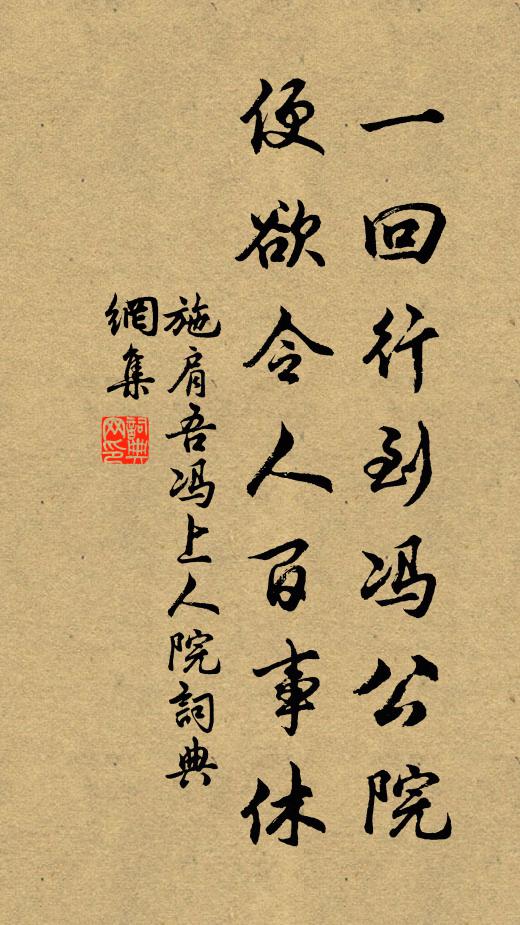 一回行到冯公院
便欲令人百事休
施肩吾冯上人院詞典
網集
詞典
网印